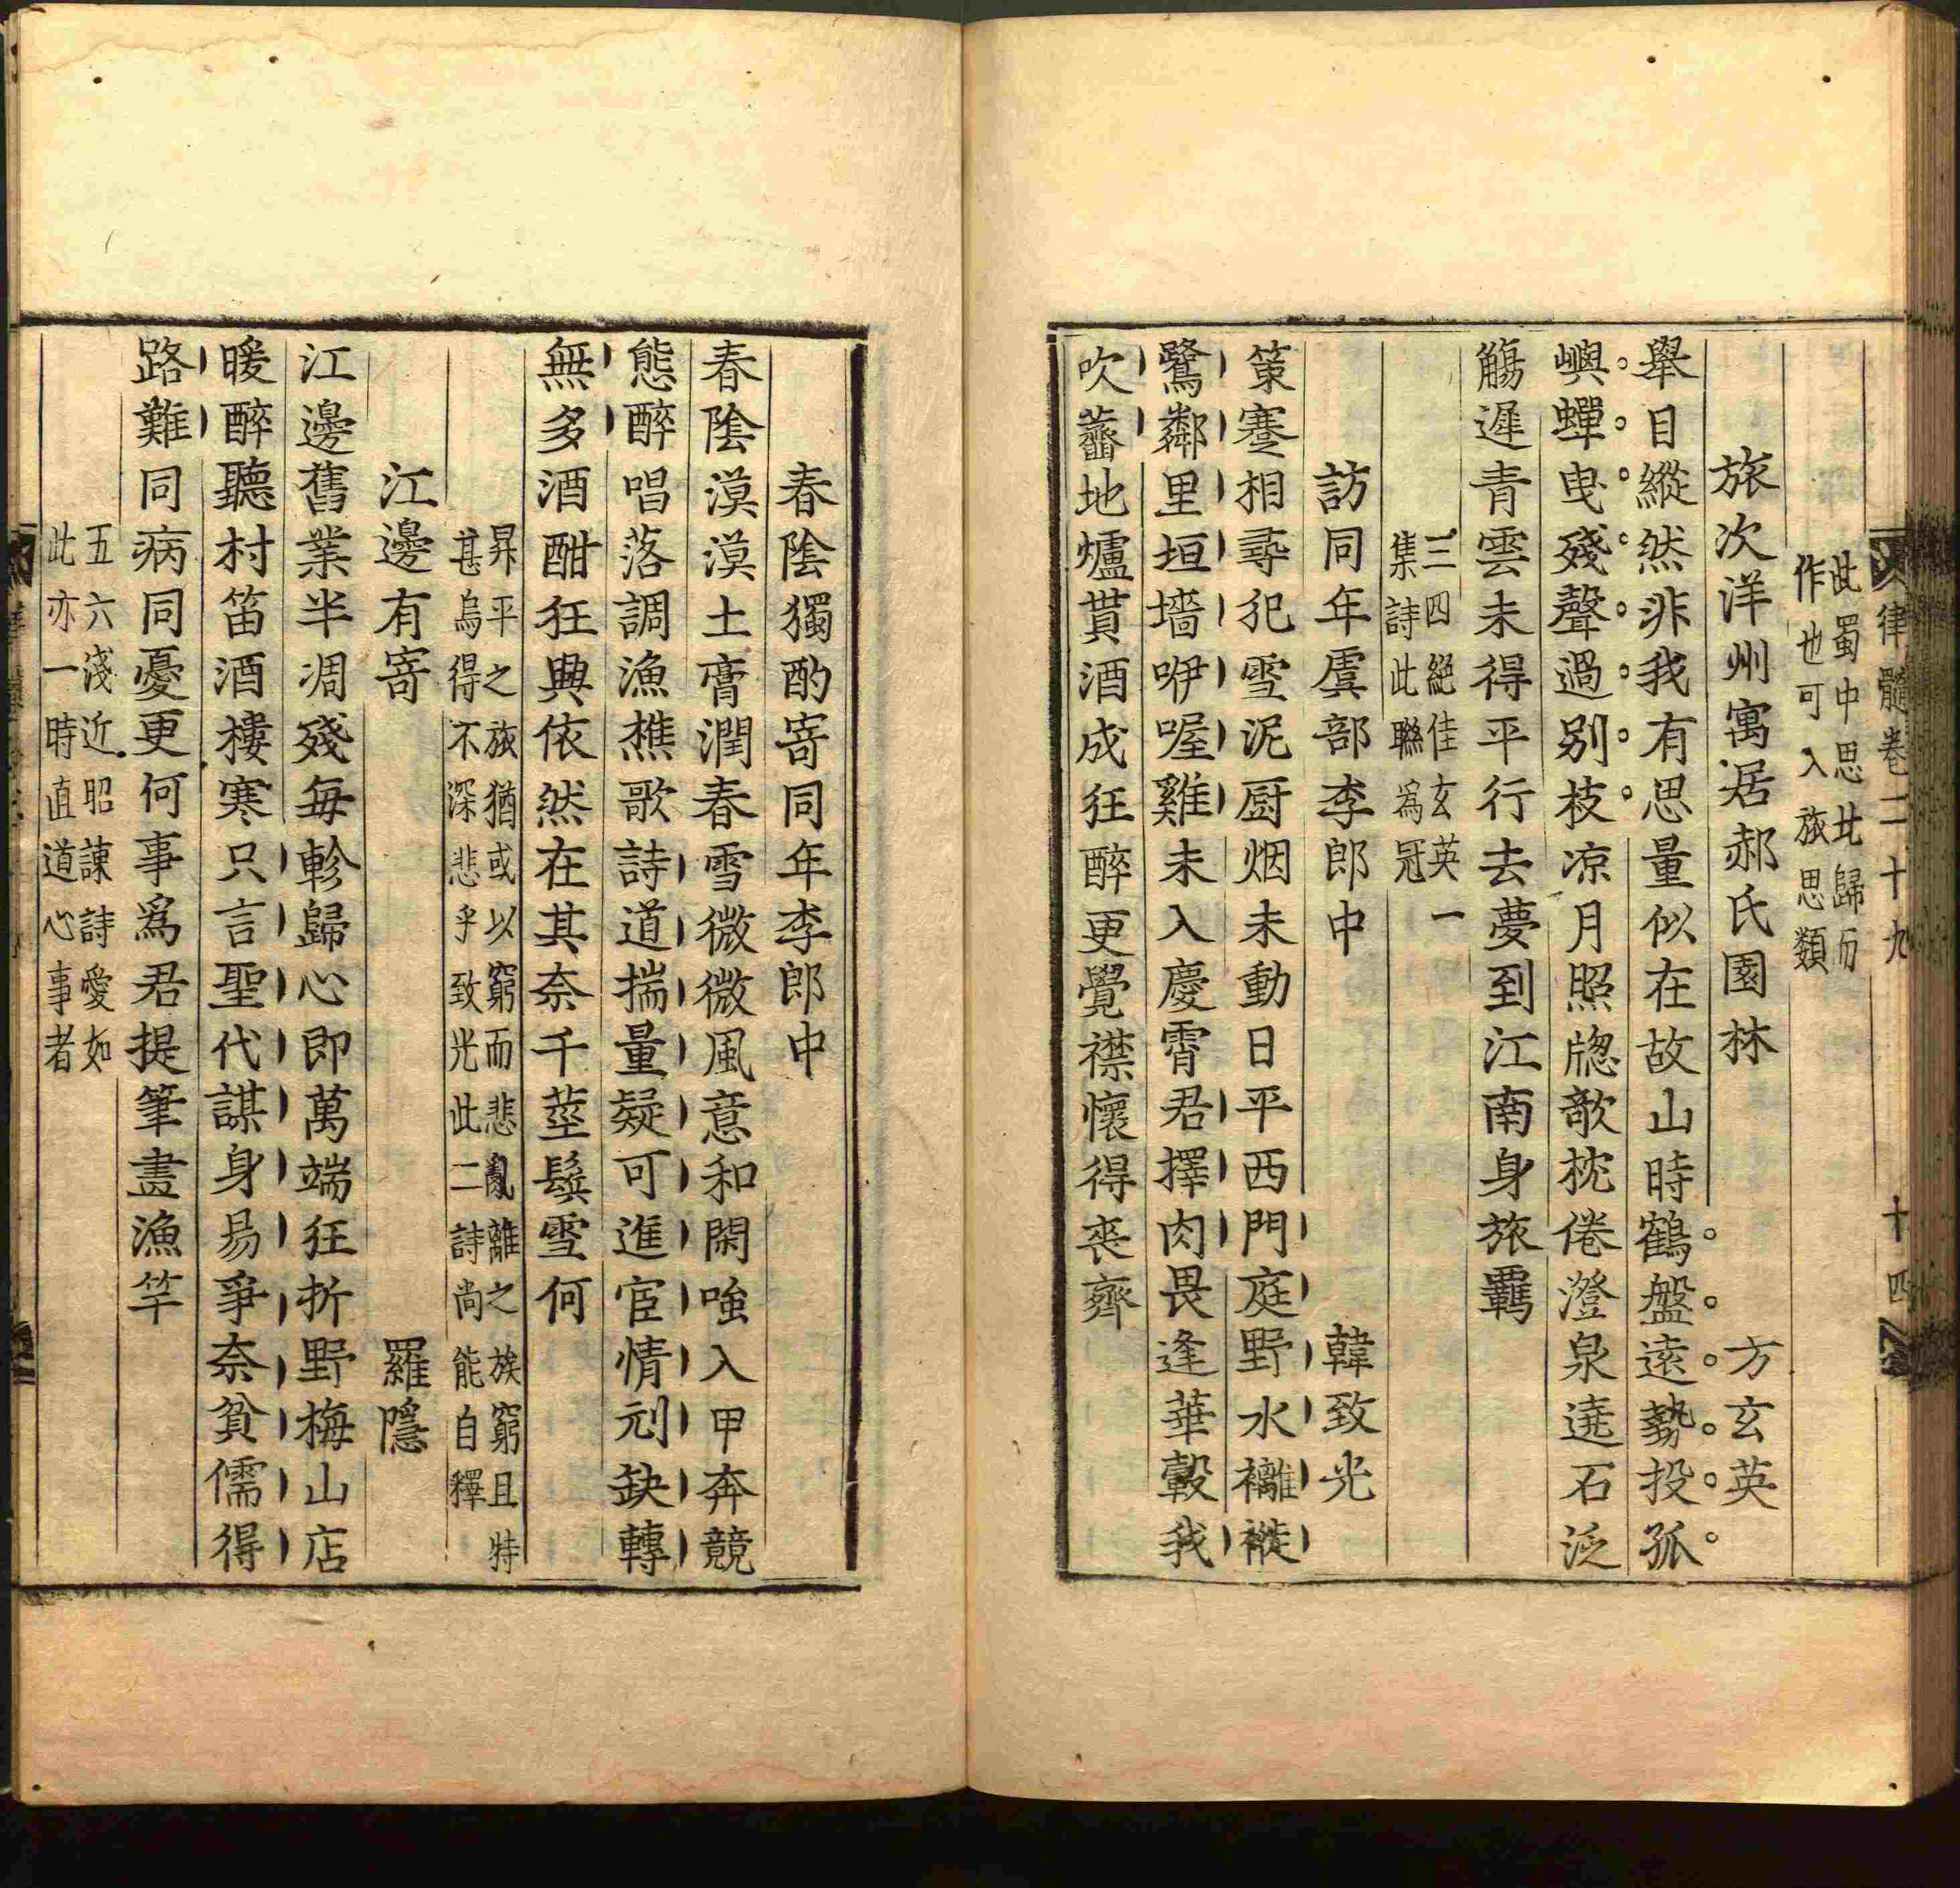 律髓卷二十九 十四
此蜀中思北歸而
作也可入旅思類
旅次洋州寓居郝氏園林 方玄英
舉目縱然非我有思量似在故山時鶴盤遠勢投孤
嶼蟬曳殘聲過別枝凉月照牕欹枕倦澄泉遶石泛
觴遲青雲未得平行去夢到江南身旅羈
三四絕佳玄英一
集詩此聯爲冠
訪同年虞部李郎中 韓致光
策蹇相尋犯雪泥厨烟未動日平西門庭野水褵褷
鷺鄰里垣墻咿喔雞未入慶霄君擇肉畏逢華轂我
吹虀地爐貰酒成狂醉更覺襟懷得喪齊
春陰獨酌寄同年李郎中
春陰漠漠土膏潤春雪微微風意和閑嗤入甲奔競
態醉唱落調漁樵歌詩道揣量疑可進宦情刓缺轉
無多酒酣狂興依然在其奈千莖鬂雪何
昇平之旅猶或以窮而悲亂離之族窮且特
甚烏得不深悲乎致光此二詩尚能自釋
江邊有寄 羅隱
江邊舊業半凋殘每軫歸心即萬端狂折野梅山店
暖醉聽村笛酒樓寒只言聖代謀身易爭奈貧儒得
路難同病同憂更何事爲君提筆畫漁竿
五六淺近昭諫詩愛如
此亦一時直道心事者